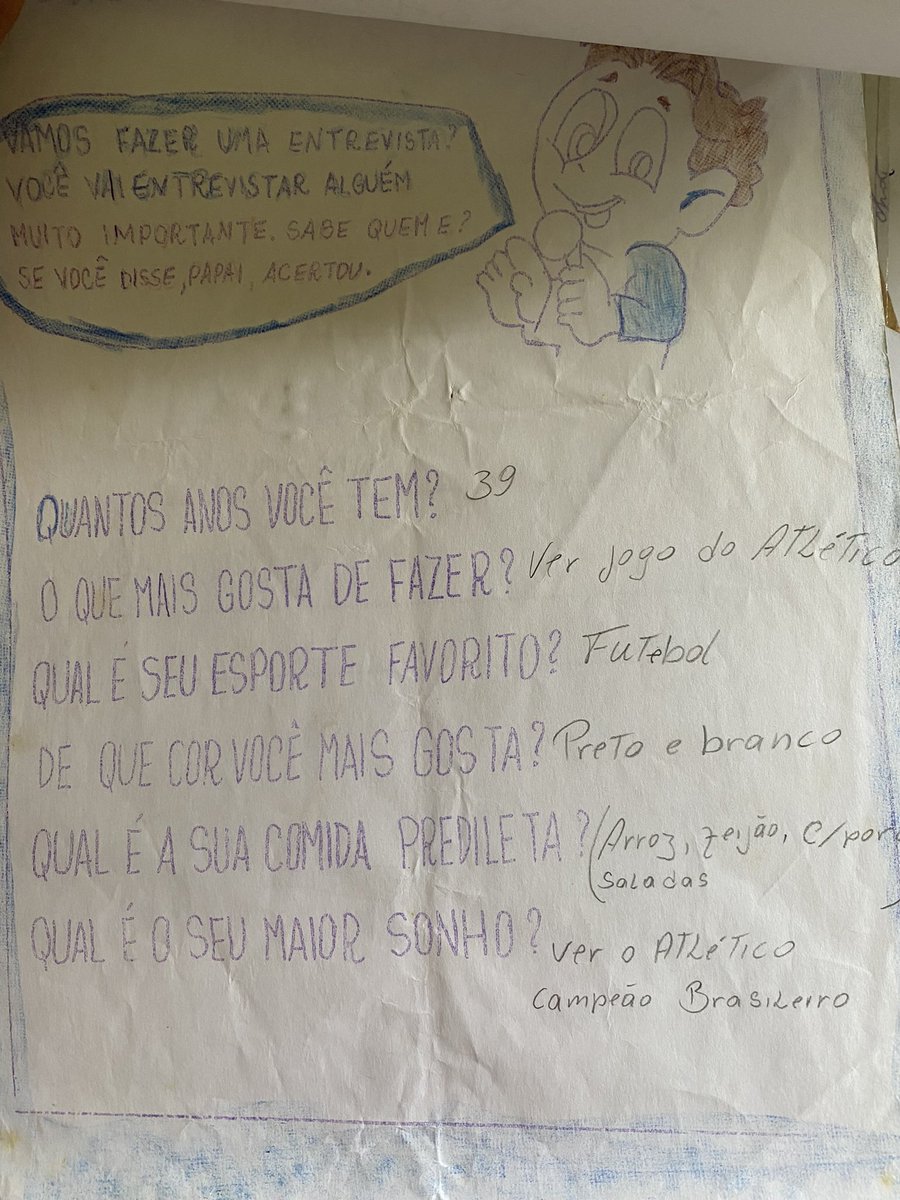 VAMOS FAZER UMA ENTREVISTA?
VOCÊ VAI ENTREVISTAR ALGUÉM
MUITO IMPORTANTE. SABE QUEM E?
SE VOCÊ DISSE, PAPAI, ACERTOU.
QUANTOS ANOS VOCÊ TEM? 39
O QUE MAIS GOSTA DE FAZER? Ver jogo do ATLÉTICO
QUAL É SEU ESPORTE FAVORITO? FuTebol
DE QUE COR VOCÊ MAIS GOSTA? Preto e branco
QUAL É A SUA COMIDA PREDILETA? (Arroz, feijão, C/
saladas
QUAL É O SEU MAIOR SONHO? ver o ATLÉTICO
Campeão Brasileiro